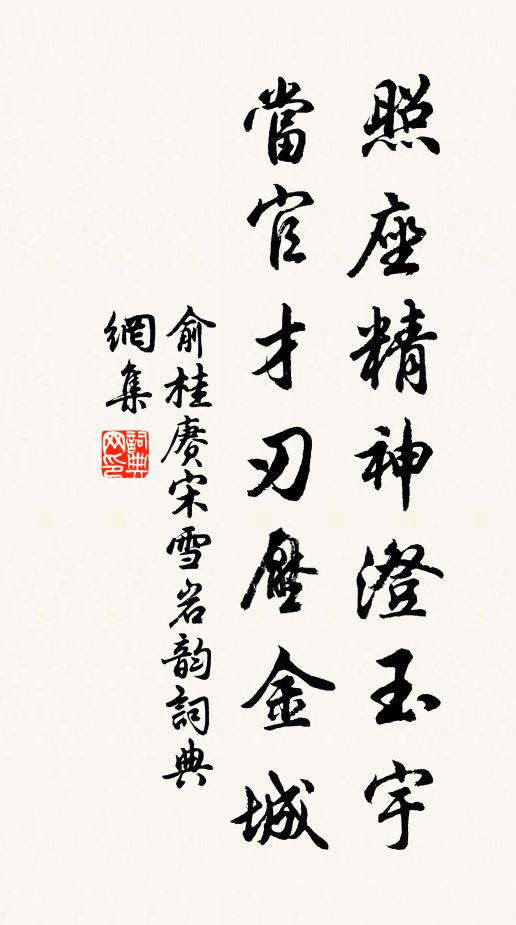 照座精神澄玉宇
當官才刃壓金城
俞桂賡宋雪岩韵詞典
網集
詞典网印